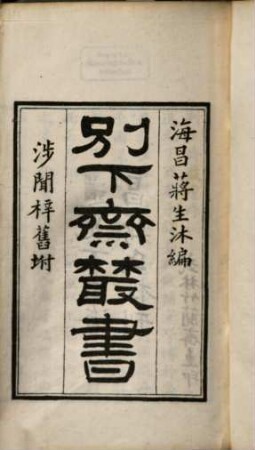 海昌蔣生沐編
別下齋叢書
涉聞梓舊坿